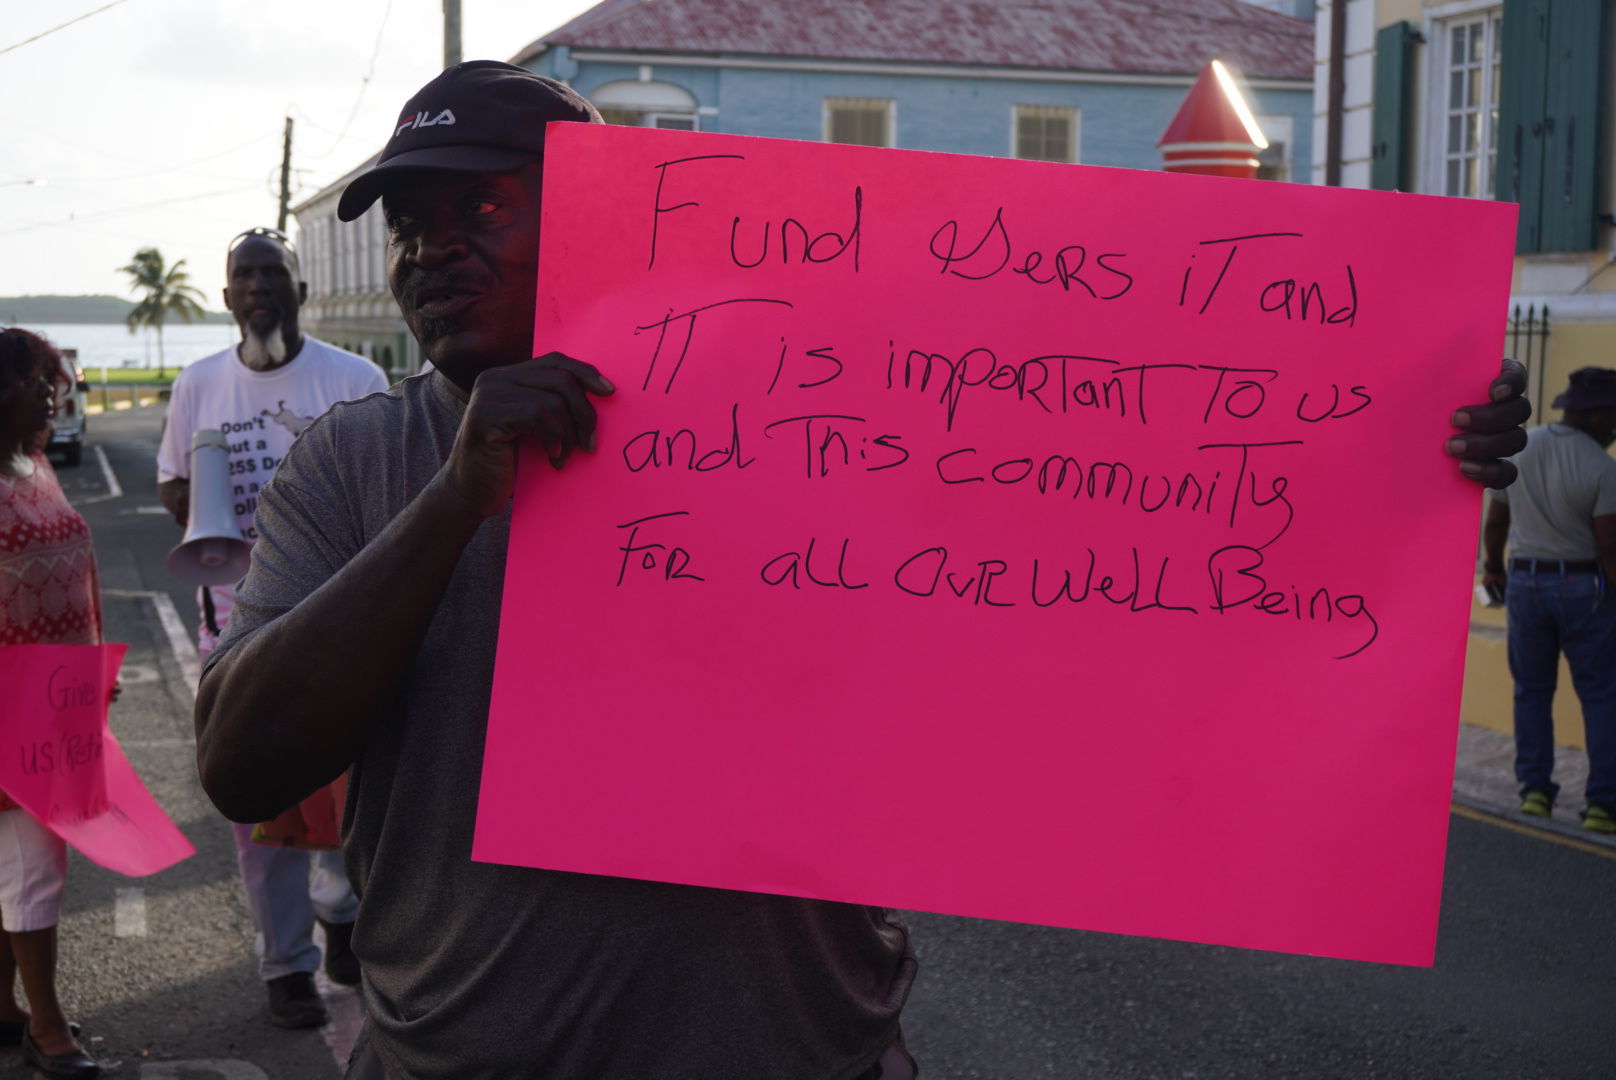 FILA
Fund Gers iT and
iT is importanT To us
and This communiTy
For all Our Well Being
Don't
out a
25$
n a
Give
us (Reti